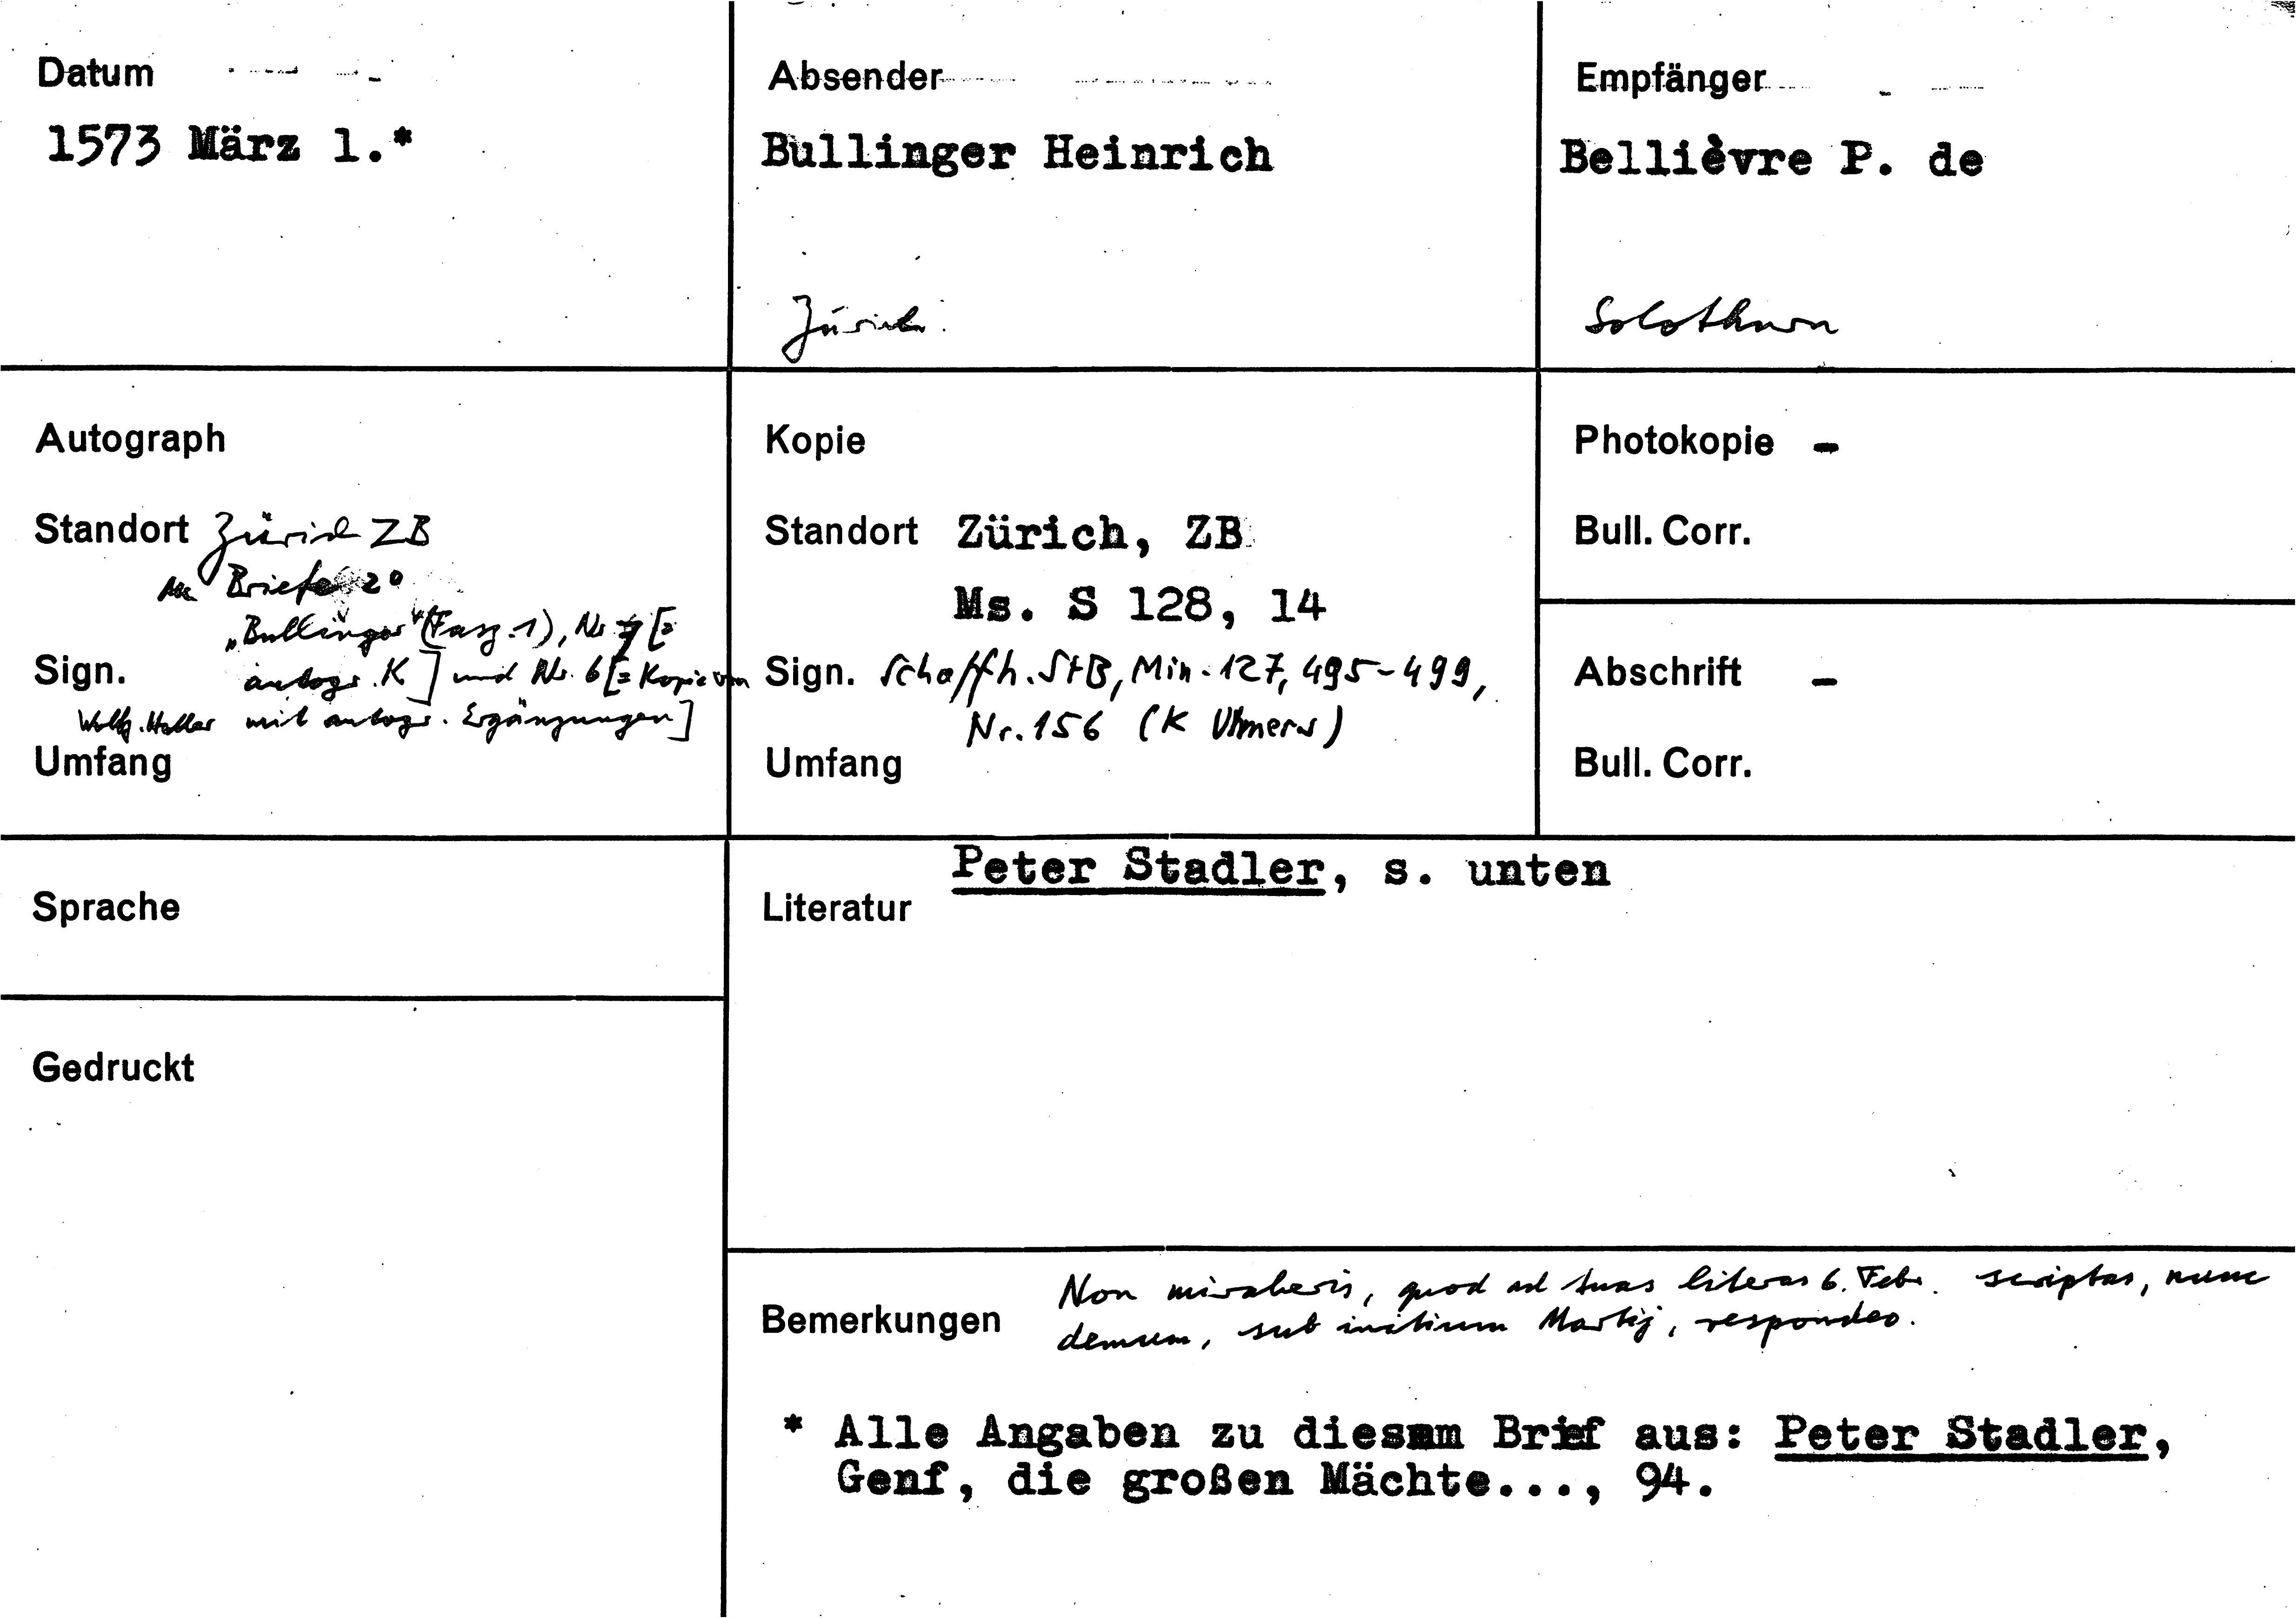 Datum
1573 März 1.*
Absender
Bullinger Heinrich
Zürich
Empfänger
Bellièvre P. de
Solothurn
Autograph
Standort Zürich ZB
Briefe 2°
„Bullinger" (Fasz. 1), Nr. 7 [=
Sign. autogr. K] und Nr. 6 [= Kopie von
Wolfg. Haller mit autogr. Ergänzungen]
Umfang
Kopie
Standort Zürich, ZB
Ms. S 128, 14
Sign. Schaffh. StB, Min. 127, 495-499,
Nr. 156 (K Ulmers)
Umfang
Photokopie -
Bull. Corr.
Abschrift -
Bull. Corr.
Sprache
Gedruckt
Peter Stadler, s. unten
Literatur
Non miraberis, quod ad tuas literas 6. Febr. scriptas, nunc
Bemerkungen demum, sub initium Martij, respondeo.
* Alle Angaben zu diesem Brief aus: Peter Stadler,
Genf, die großen Mächte..., 94.